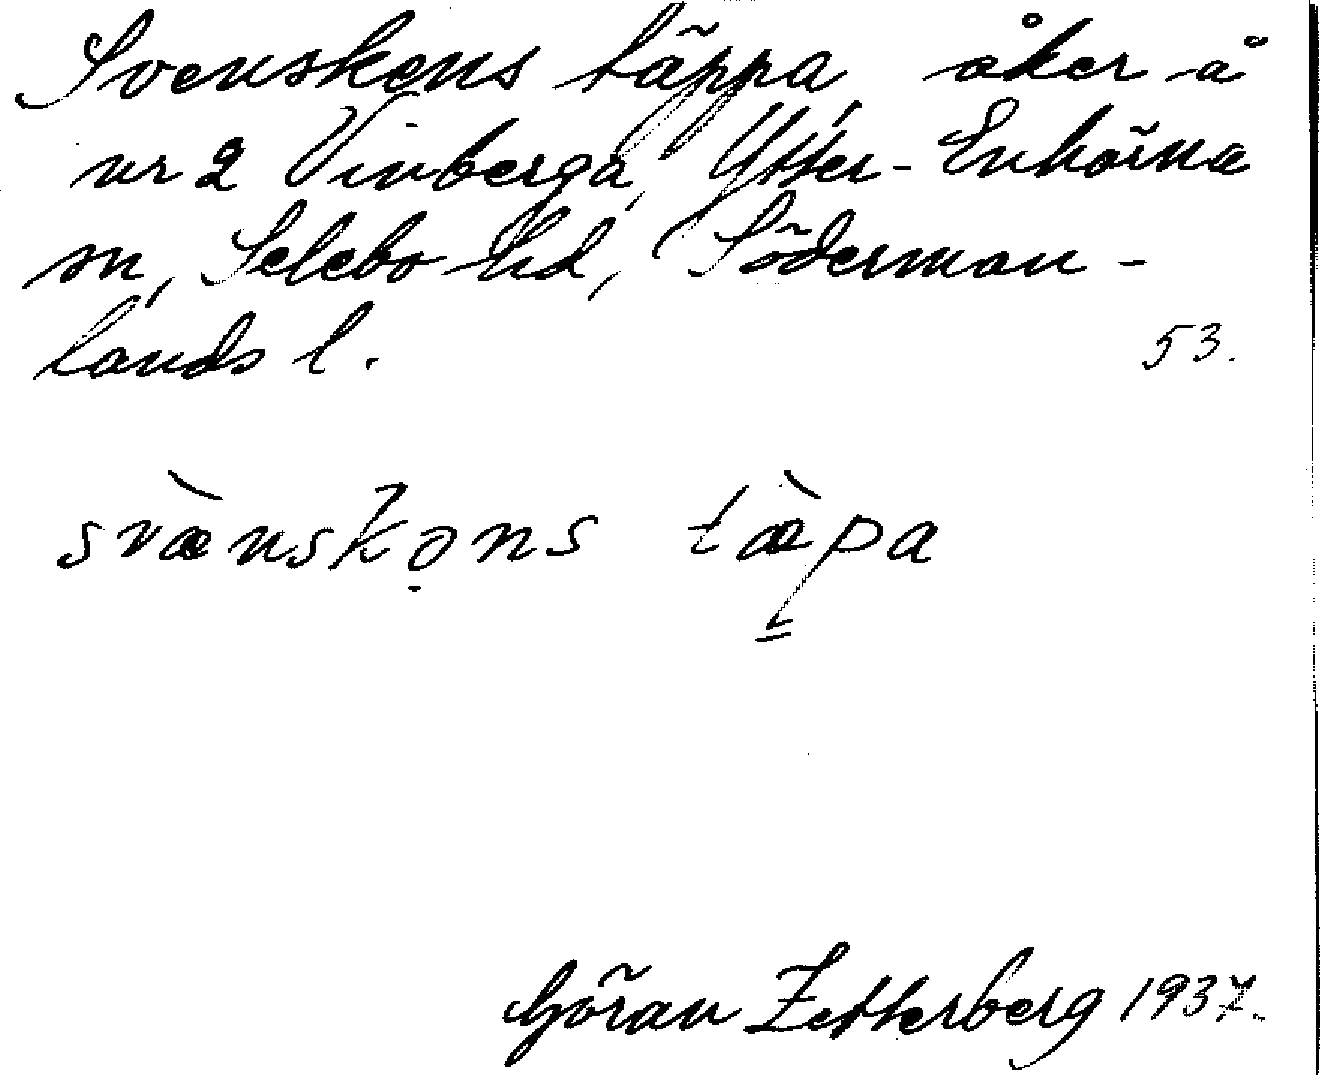 Svenskens täppa, åker å
nr 2 Vinberga, Ytter-Enhörna
sn, Selebo hd, Söderman-
lands l.
53.
svæ̀nskǝ̣ns tæ̀pa
Göran Zetterberg 1937.